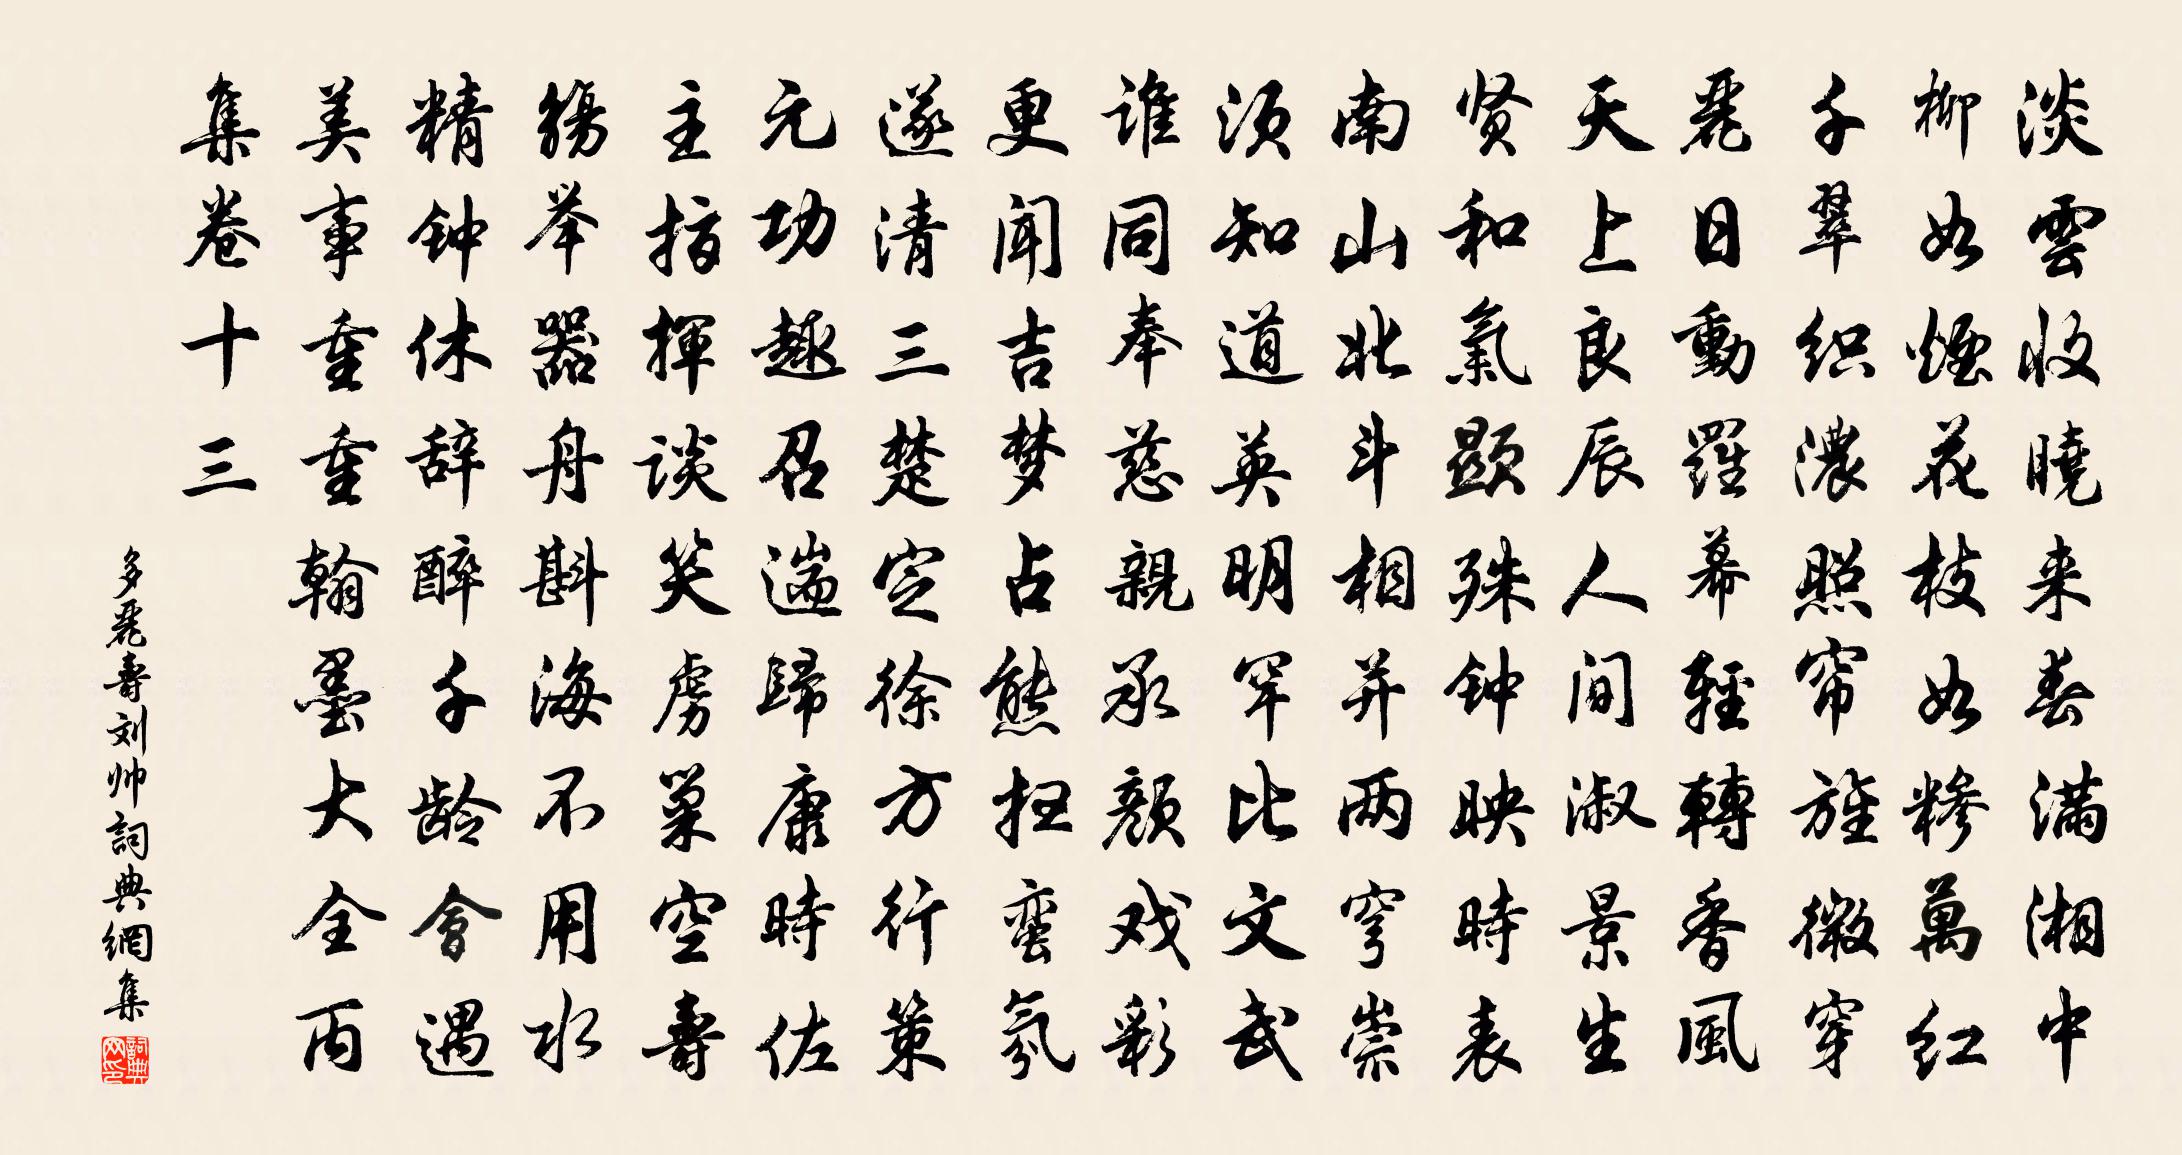 淡雲收曉来春满湘中
柳如煙花枝如糁萬红
千翠织濃照帘旌微穿
麗日動羅幕輕轉香風
天上良辰人间淑景生
贤和氣顯殊钟映時表
南山北斗相并两穹崇
须知道英明罕比文武
谁同奉慈親承颜戏彩
更闻吉梦占熊扫蛮氛
遂清三楚定徐方行策
元功趣召遄歸康時佐
主指揮谈笑虏巢空壽
觴举器舟斟海不用水
精钟休辞醉千龄會遇
美事重重翰墨大全丙
集卷十三
多麗壽刘帅詞典網集
詞典网印